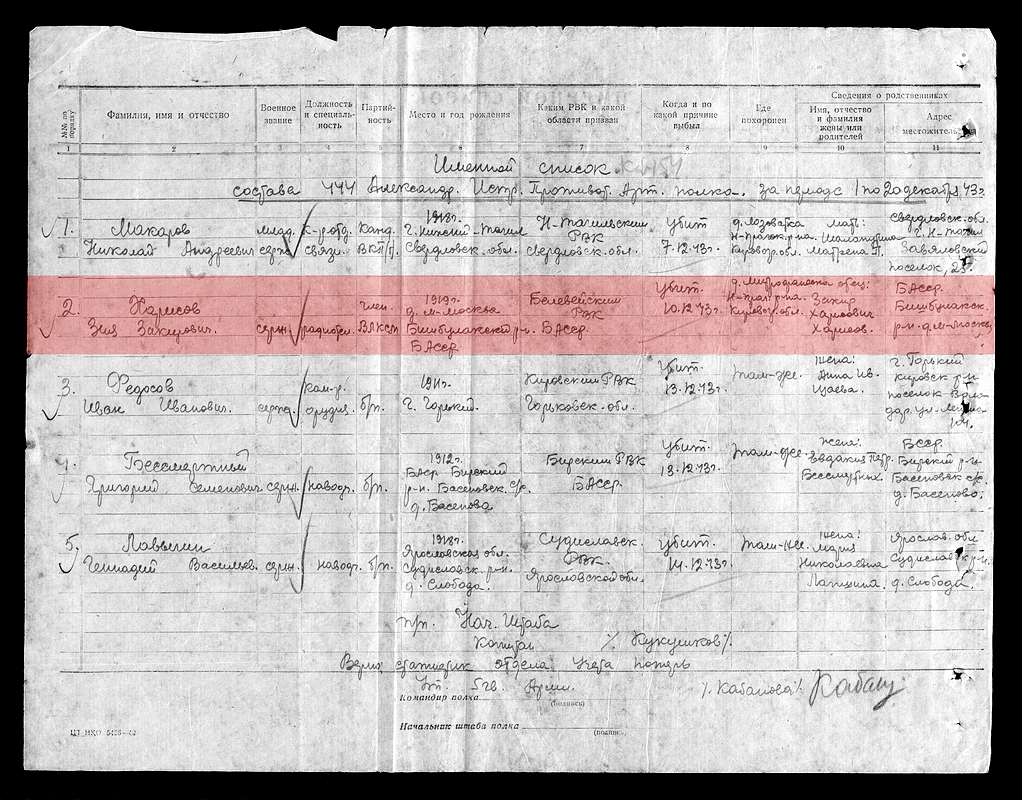 №№ по порядку
Фамилия, имя и отчество
Военное звание
Должность и специальность
Партийность
Место и год рождения
Каким РВК и какой области призван
Когда и по какой причине выбыл
Где похоронен
Сведения о родственниках
Имя, отчество и фамилия жены или родителей
Адрес
1 2 3 4 5 6 7 8 9 10 11
Именной список
состава 444 Александр. Истр. Противот. Арт. полка за период 1 по 20 декабря 43г.
1. Макаров
Николай Андреевич
К-р отд. связи
Канд. ВКП/б
1918г.
Свердловск. обл.
Н-Тагильским
РВК
Свердловск. обл.
Убит
7.12.43г.
мать:
Свердловск. обл.
г. Н-Тагил
поселок,
2. Харисов
Зия Закирович
член
ВЛКСМ
1919г.
д. М-Москва
Бишбулякский р-н.
БАССР
Белебейским
РВК
БАССР.
Убит
10.12.43г.
отец:
Закир
Харисович
Харисов.
БАССР.
Бишбулякск.
р-н. д. М-Москва
3. Федосов
Иван Иванович
ком-р.
орудия.
б/п.
1911г.
г. Горький.
Кировским РВК
Горьковск. обл.
Убит.
13.12.43г.
там-же.
жена:
Анна Ив.
г. Горький
Кировск. р-н
поселок
4. Бессмертный
Григорий Семенович
наводч.
б/п.
1912г.
БАССР Бирский
р-н. Басеновск. с/с.
д. Басенова
Бирским РВК
БАССР.
Убит.
13.12.43г.
там-же.
жена:
Евдокия Петр.
Бессмертных.
БССР.
Бирский р-н
Басеновск с/с.
д. Басеново.
5.
Геннадий Васильев.
наводч.
б/п.
1918г.
Ярославская обл.
Судиславск. р-н.
д. Слобода.
Судиславск.
РВК.
Ярославской обл.
Убит.
14.12.43г.
там-же.
жена:
Мария
Николаевна
Ярослав. обл
Судиславск. р-н.
д. Слобода
п/п. Нач. Штаба
Капитан /Кукушков/
Верно: статистик отдела учета потерь
5 гв. Армии.
/Кабанова/
Командир полка
(подпись)
Начальник штаба полка
(подпись)